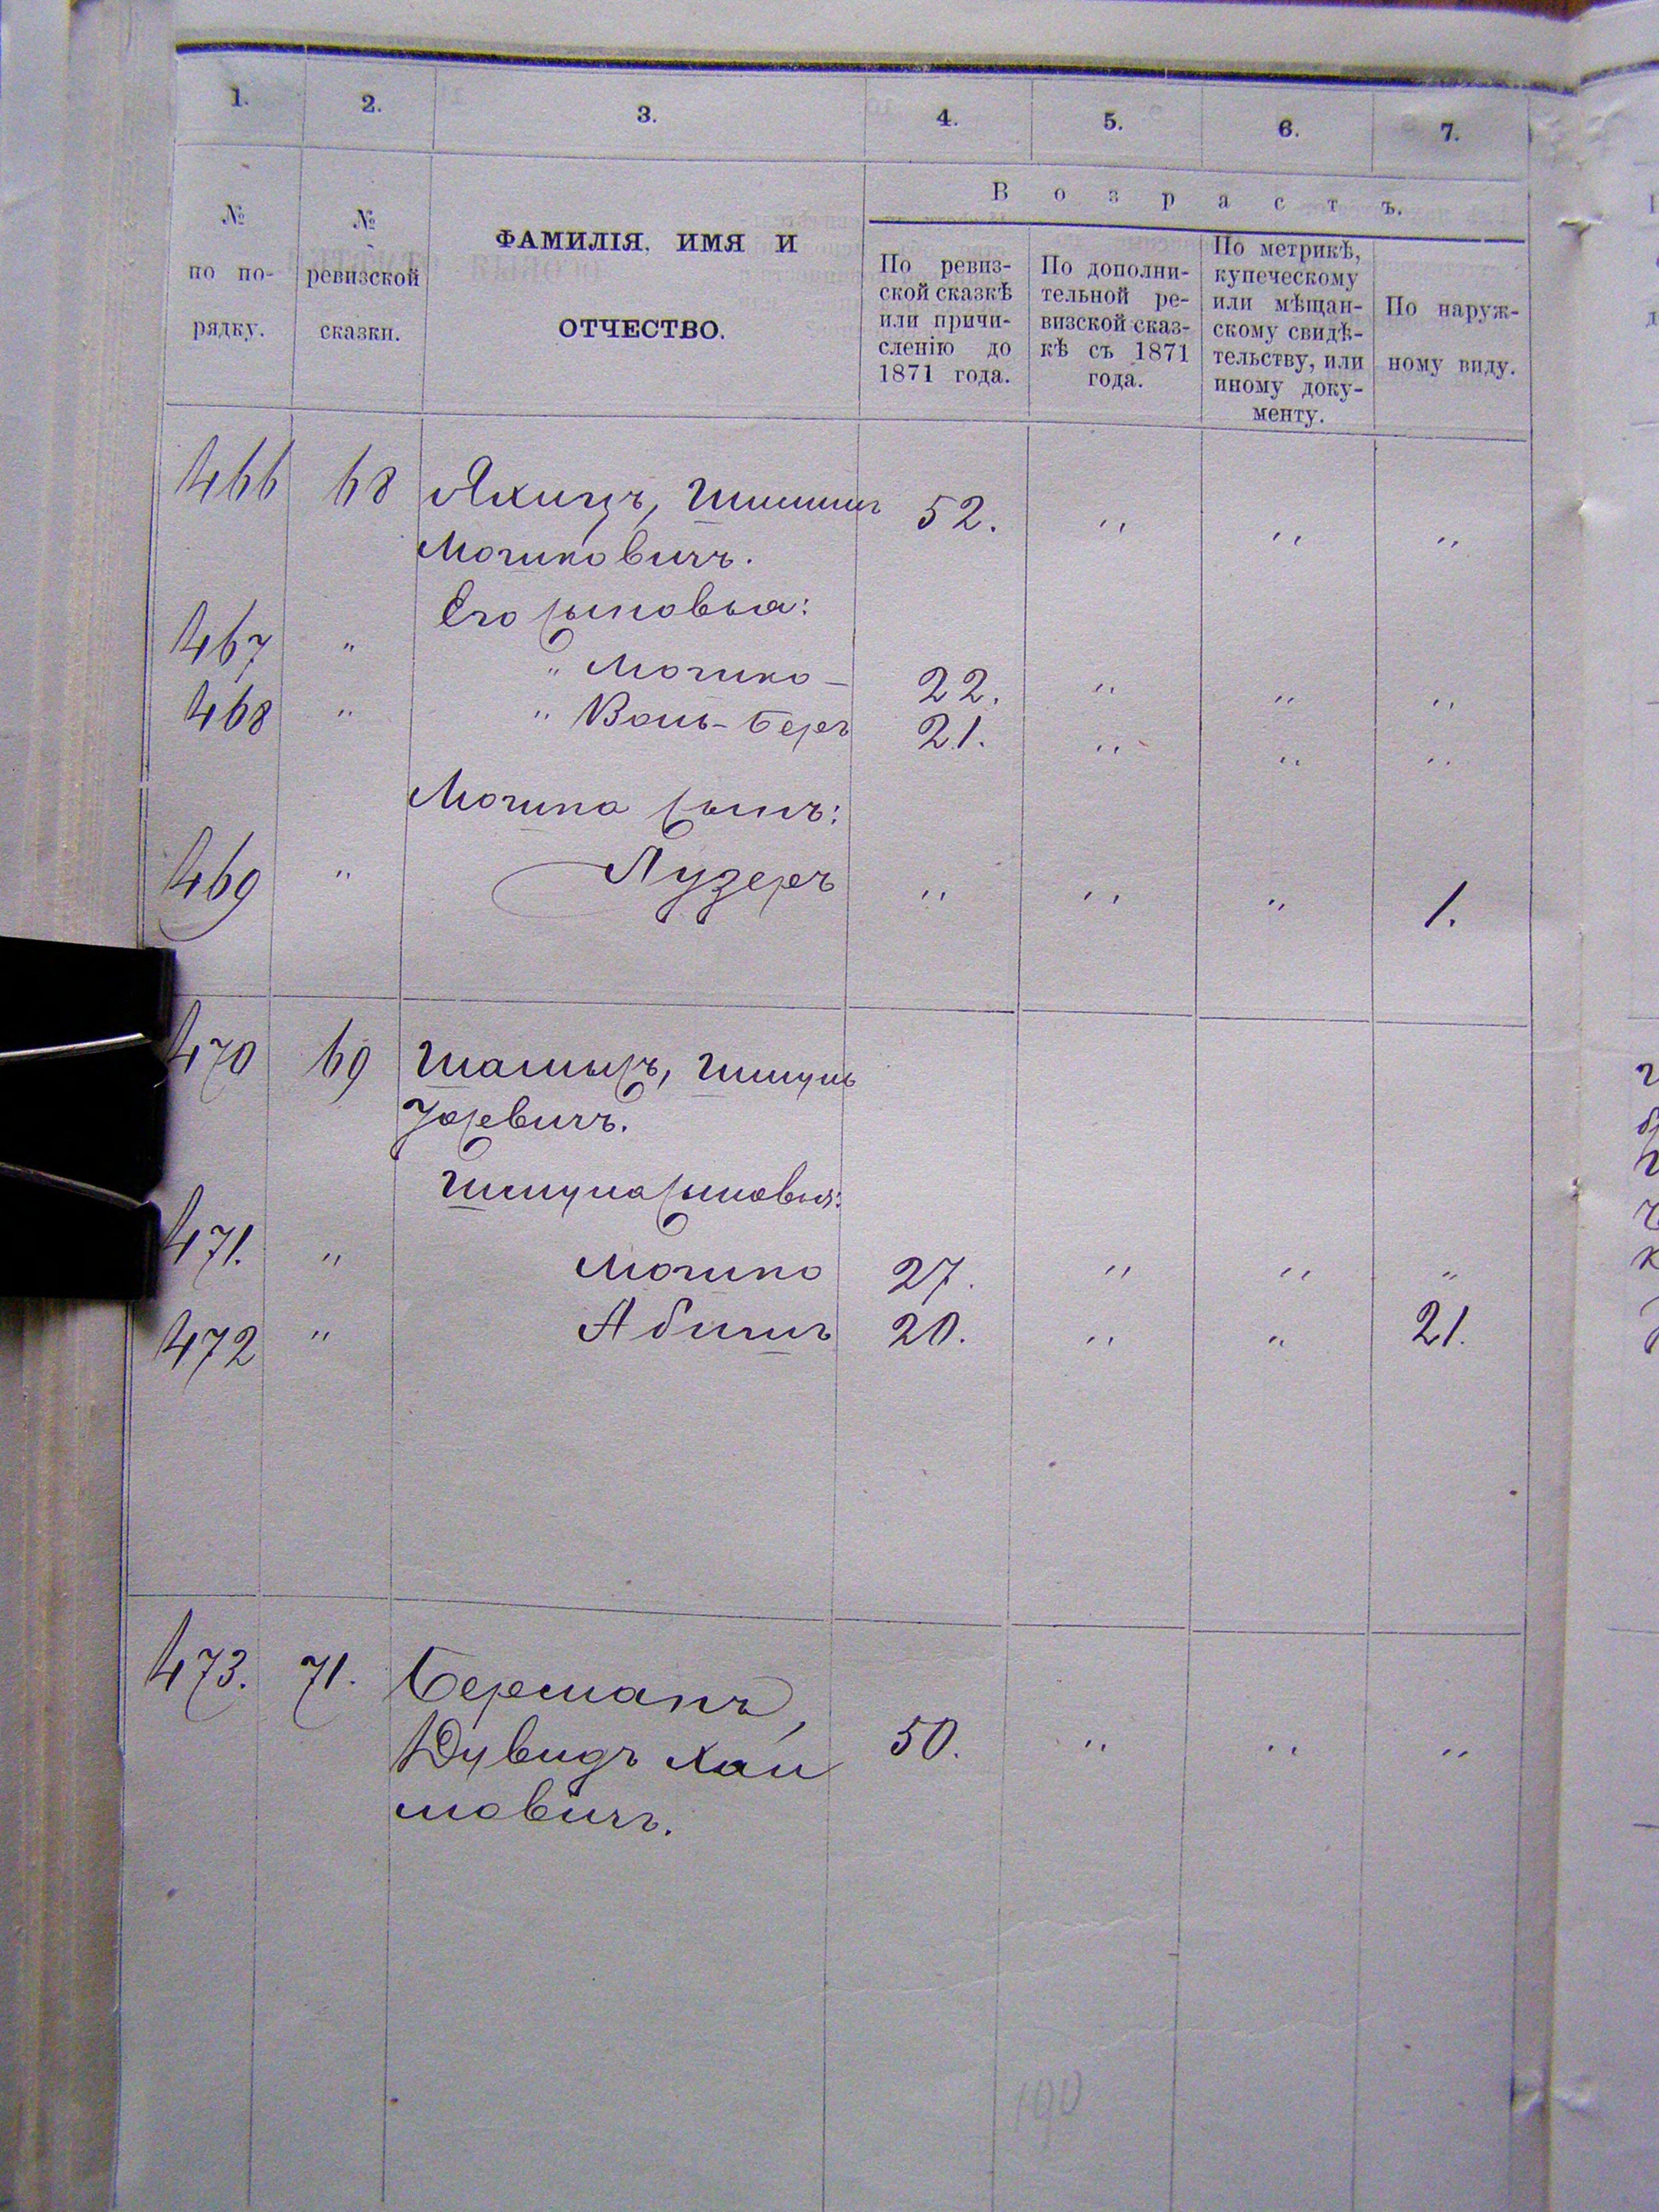 1. 2. 3. 4. 5. 6. 7.
№ по порядку.
№ ревизской сказки.
ФАМИЛІЯ, ИМЯ И
ОТЧЕСТВО.
Возрастъ.
По ревиз-
ской сказкѣ
или причи-
сленію до
1871 года.
По дополни-
тельной ре-
визской сказ-
кѣ съ 1871
года.
По метрикѣ,
купеческому
или мѣщан-
скому свидѣ-
тельству, или
иному доку-
менту.
По наруж-
ному виду.
466 68 Яхицъ, Шимшиъ 52. " " "
Мошковичъ.
Его сыновья:
467 " " Мошко 22. " " "
468 " " Вольф-Беръ 21. " " "
Мошка сынъ:
469 " Лузеръ " " " 1.
470 69 Шамысъ, Шимунъ
Уосевичъ.
Шимуна сыновья:
471. " Мошко 27. " " "
472 " Абишъ 20. " " 21.
473. 71. Берманъ,
Дувидъ Хаи
мовичъ. 50. " " "
190